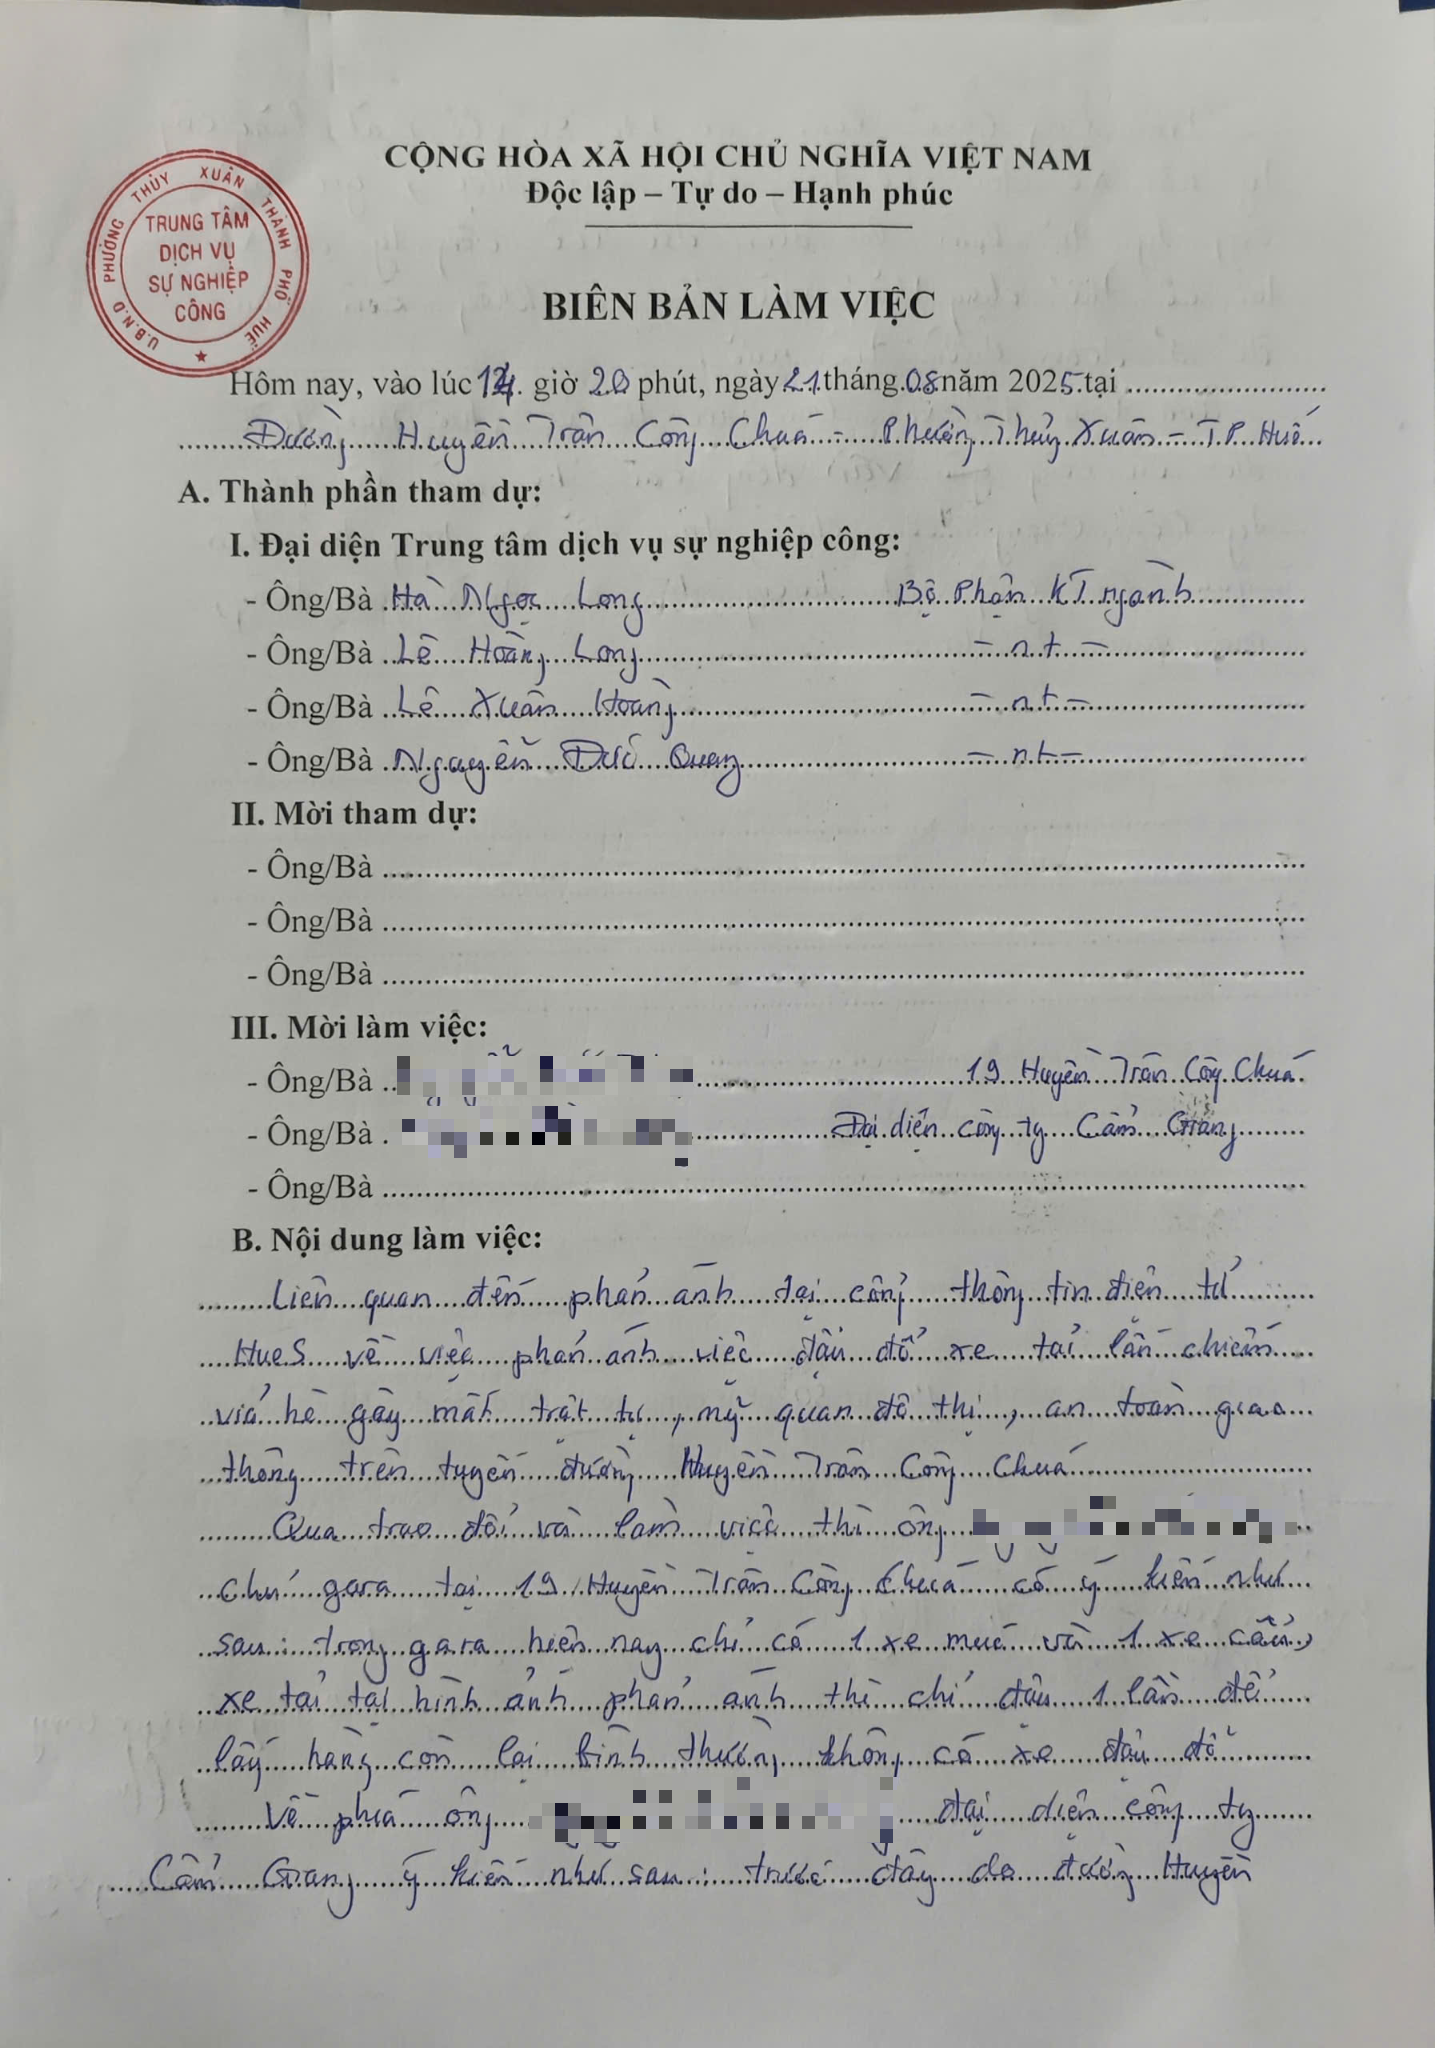 CỘNG HÒA XÃ HỘI CHỦ NGHĨA VIỆT NAM
Độc lập – Tự do – Hạnh phúc
U.B.N.D PHƯỜNG THỦY XUÂN THÀNH PHỐ HUẾ
TRUNG TÂM
DỊCH VỤ
SỰ NGHIỆP
CÔNG
BIÊN BẢN LÀM VIỆC
Hôm nay, vào lúc 14 giờ 20 phút, ngày 21 tháng 08 năm 2025 tại
Đường Huyền Trân Công Chúa - Phường Thủy Xuân - T.P Huế
A. Thành phần tham dự:
I. Đại diện Trung tâm dịch vụ sự nghiệp công:
- Ông/Bà Hà Ngọc Long Bộ Phận KT ngành
- Ông/Bà Lê Hoàng Long - n.t -
- Ông/Bà Lê Xuân Hoàng - n.t -
- Ông/Bà Nguyễn Đức Quang - n.t -
II. Mời tham dự:
- Ông/Bà
- Ông/Bà
- Ông/Bà
III. Mời làm việc:
- Ông/Bà 19 Huyền Trân Công Chúa
- Ông/Bà Đại diện công ty Cẩm Giang
- Ông/Bà
B. Nội dung làm việc:
Liên quan đến phản ánh tại cổng thông tin điện tử
HueS về việc phản ánh việc đậu đỗ xe tải lấn chiếm
vỉa hè gây mất trật tự, mỹ quan đô thị, an toàn giao
thông trên tuyến đường Huyền Trân Công Chúa
Qua trao đổi và làm việc thì ông
chủ gara tại 19 Huyền Trân Công Chúa có ý kiến như
sau: trong gara hiện nay chỉ có 1 xe múc và 1 xe cẩu,
xe tải tại hình ảnh phản ánh thì chỉ đậu 1 lần để
lấy hàng còn lại bình thường không có xe đậu đỗ
Về phía ông đại diện công ty
Cẩm Giang ý kiến như sau: trước đây do đường Huyền